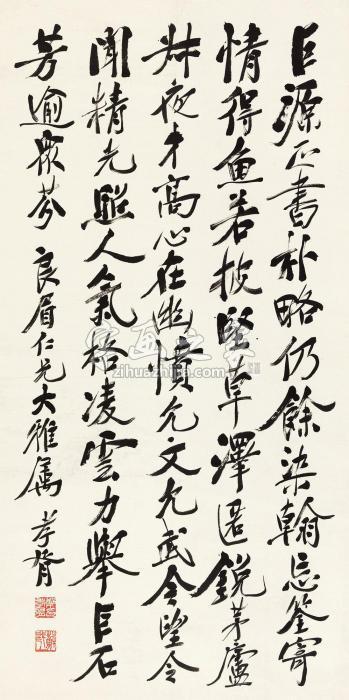 巨源正書朴略仍餘染翰忘筌寄
情得魚若披堅草澤匿銳茅廬
叔夜才高心在幽憤允文允武令望令
聞精光照人氣格凌雲力舉巨石
芳逾眾芬 良眉仁兄大雅属 孝胥
字画之家
zihuazhijia.com